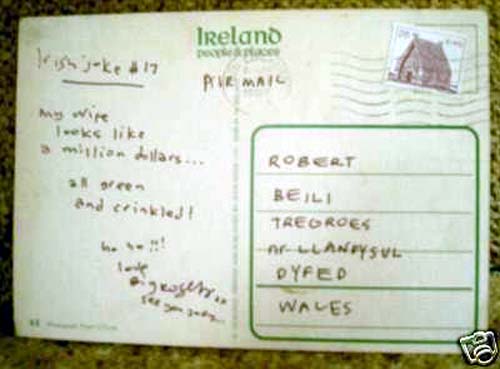 Ireland
people & places
Irish joke #17
AIR MAIL
my wife
looks like
a million dollars...
all green
and crinkled!
ho ho!!!
love
see you soon...
ROBERT
BEILI
TREGROES
NR LLANDYSUL
DYFED
WALES